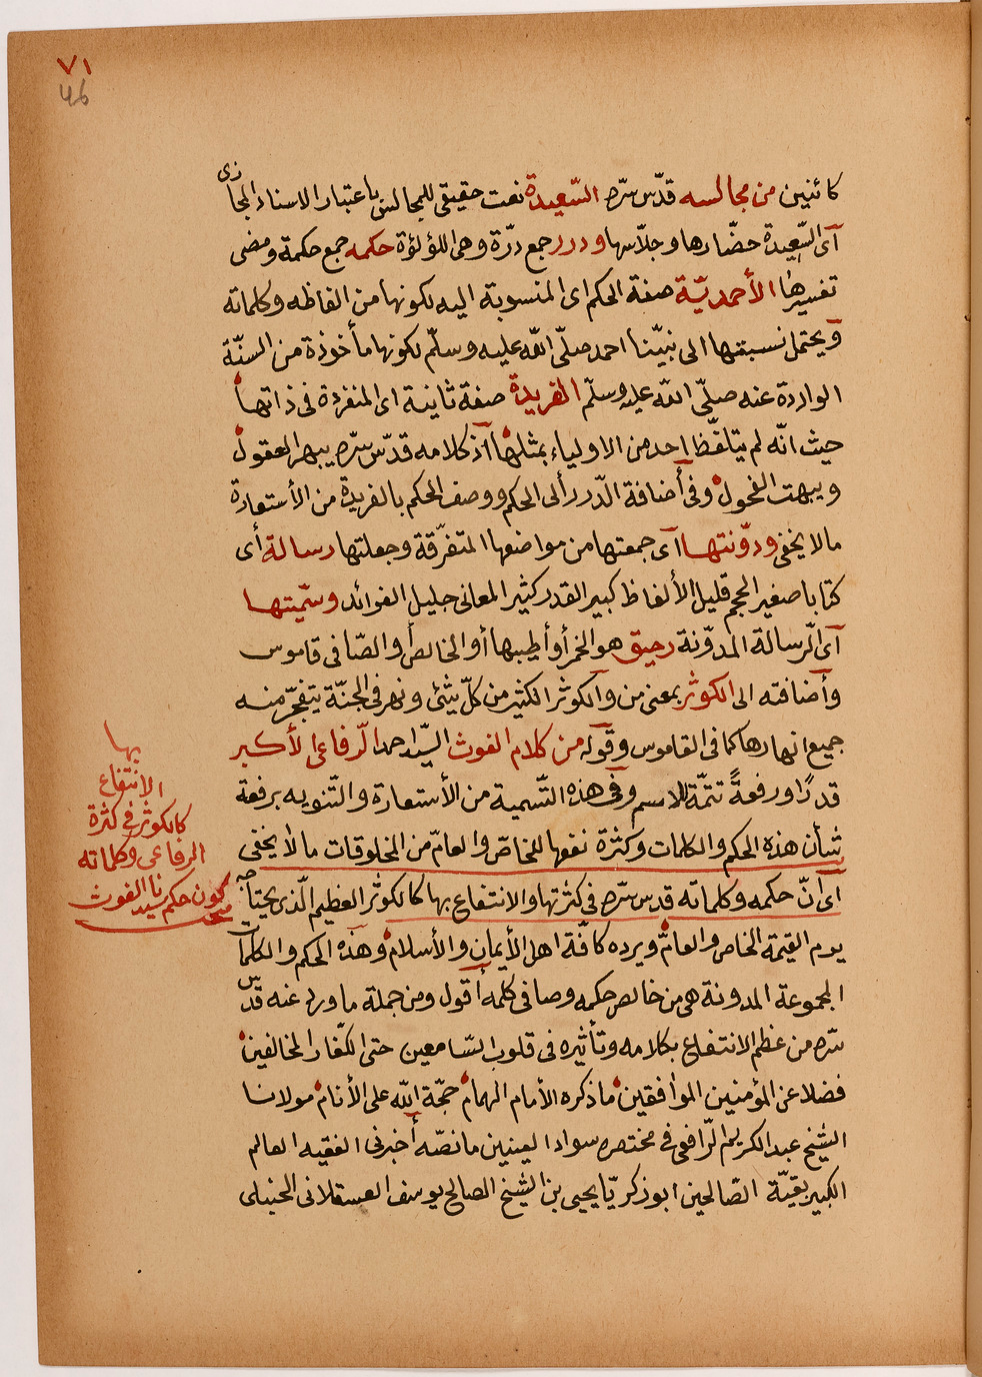 ٧١
46
كائنين من مجالسه قدّس سرّه السّعيدة نعت حقيقى للمجالس باعتبار الاسناد المجازى
أى السّعيدة حضّارها وجلّاسها ودرر جمع درّة وهى اللؤلؤة حكمه جمع حكمة ومضى
تفسيرها الأحمديّة صفة الحكم اى المنسوبة اليه لكونها من الفاظه وكلماته
ويحتمل نسبتها الى نبيّنا احمد صلّى الله عليه وسلّم لكونها مأخوذة من السنّة
الواردة عنه صلّى الله عليه وسلّم الفريدة صفة ثانية اى المنفردة فى ذاتها
حيث انّه لم يتلفّظ احد من الاولياء بمثلها اذ كلامه قدّس سرّه يبهر العقول
ويبهت الفحول وفى أضافة الدّرر ألى الحكم ووصف الحكم بالفريدة من الأستعارة
مالا يخفى ودوّنتها أى جمعتها من مواضعها المتفرّقة وجعلتها رسالة أى
كتابا صغير الحجم قليل الألفاظ كبير القدر كثير المعانى جليل الفوائد وسمّيتها
أى الرّسالة المدوّنة رحيق هو الخمر أو أطيبها أو الخالص أو الصّافى قاموس
وأضافته الى الكوثر بمعنى من والكوثر الكثير من كلّ شئ ونهر فى الجنّة يتفجّر منه
جميع انهارها كما فى القاموس وقوله من كلام الغوث السّيّد احمد الرّفاعى الأكبر
قدرًا ورفعةً تتمّة للاسم وفى هذه التّسمية من الأستعارة والتّنويه برفعة
شأن هذه الحكم والكلمات وكثرة نفعها للخاصّ والعامّ من المخلوقات مالا يخفى
اى انّ حكمه وكلماته قدس سرّه فى كثرتها والانتفاع بها كالكوثر العظيم الّذى يحتاجه
يوم القيمة الخاص والعامّ ويرده كافّة اهل الأيمان والأسلام وهذه الحكم والكلمات
المجموعة المدونة هى من خالص حكمه وصافى كلمه أقول ومن جملة ما ورد عنه قدّس
سرّه من عظم الانتفاع بكلامه وتأثيره فى قلوب السّامعين حتى الكفّار المخالفين
فضلا عن المؤمنين الموافقين ما ذكره الأمام الهمام حجّة الله على الأنام مولانا
الشيخ عبد الكريم الرّافعى فى مختصره سواد العينين ما نصّه أخبرنى الفقيه العالم
الكبير بقيّة الصّالحين ابو زكريّا يحيى بن الشيخ الصالح يوسف العسقلانى الحنبلى
بها
الانتفاع
كالكوثر فى كثرة
الرفاعى وكلماته
كون حكم سيدنا الغوث